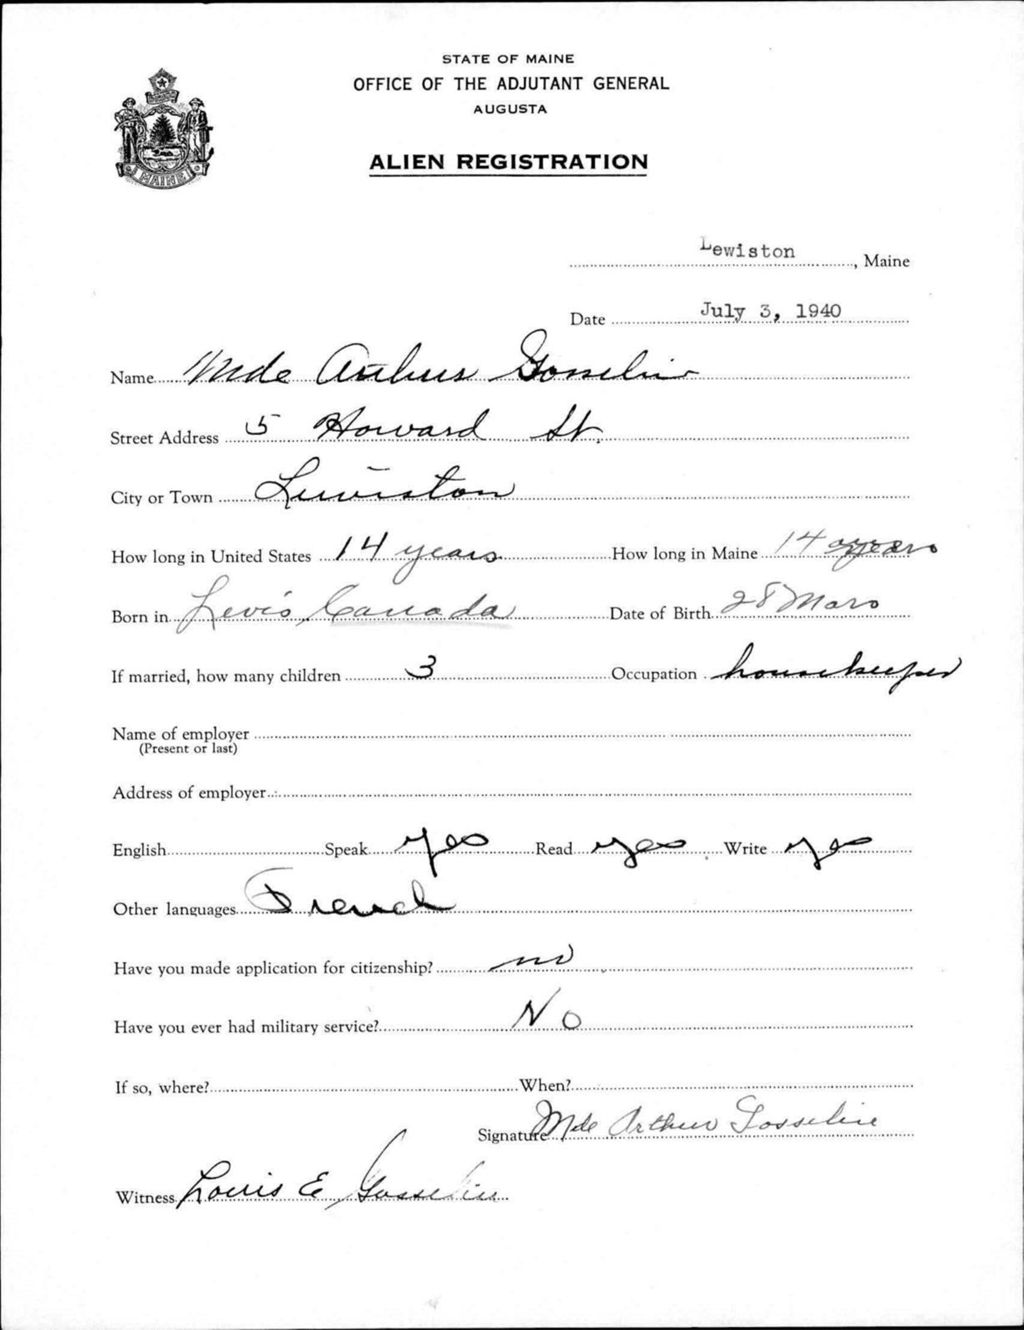 STATE OF MAINE
OFFICE OF THE ADJUTANT GENERAL
AUGUSTA
ALIEN REGISTRATION
MAINE
Lewiston, Maine
Date July 3, 1940
Name Mde Arthur Gosselin
Street Address 5 Howard St.
City or Town Lewiston
How long in United States 14 years How long in Maine 14 years
Born in Levis, Canada Date of Birth 28 Mars
If married, how many children 3 Occupation housekeeper
Name of employer
(Present or last)
Address of employer
English Speak yes Read yes Write yes
Other languages French
Have you made application for citizenship? no
Have you ever had military service? No
If so, where? When?
Signature Mde Arthur Gosselin
Witness Louis E Gosselin